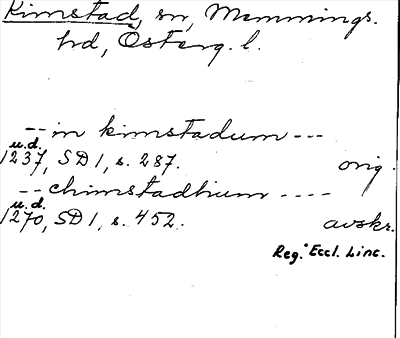 Kimstad, sn, Memmings.
hd, Österg. l.
-- in kimstadum ---
u.d.
1237, SD 1, s. 287. orig.
-- chimstadhium ----
u.d.
1270, SD 1, s. 452. avskr.
Reg. Eccl. Linc.